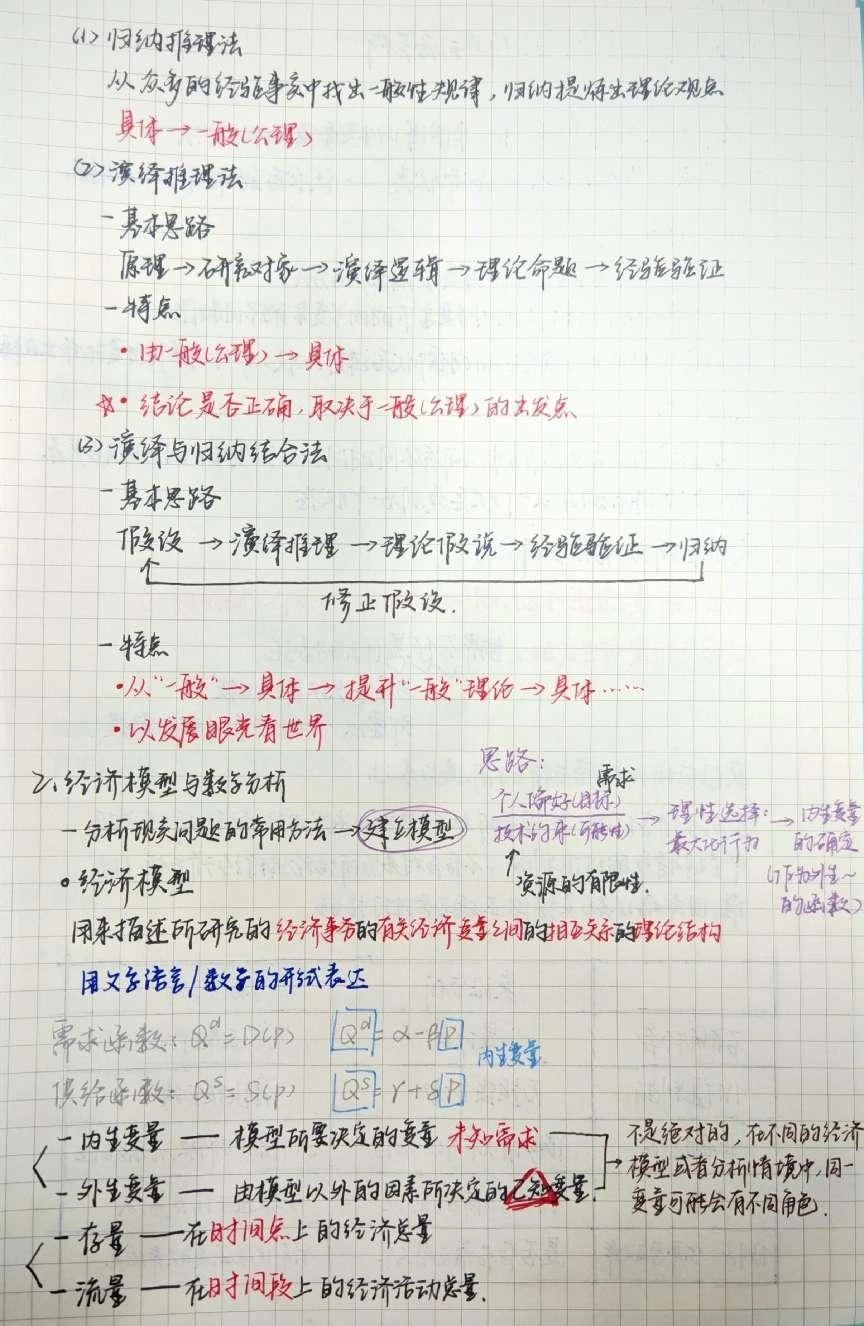 (1) 归纳推理法
从众多的经验事实中找出一般性规律，归纳提炼出理论观点
具体→一般(公理)
(2) 演绎推理法
- 基本思路
原理→研究对象→演绎逻辑→理论命题→经验验证
- 特点
• 由一般(公理)→具体
☆• 结论是否正确，取决于一般(公理)的出发点
(3) 演绎与归纳结合法
- 基本思路
假设→演绎推理→理论假说→经验验证→归纳
修正假设.
- 特点
• 从"一般"→具体→提升"一般"理论→具体……
• 以发展眼光看世界
二、经济模型与数学分析
- 分析现实问题的常用方法→建立模型
思路：
需求
个人偏好(目标)
技术约束(可能性)
→理性选择：
最大化行为
→内生变量
的确定
(作为外生~
的函数)
资源的有限性.
• 经济模型
用来描述所研究的经济事务的有关经济变量之间的相互关系的理论结构
用文字语言/数学的形式表达
需求函数：Qᵈ=D(P) Qᵈ=α-βP
内生变量
供给函数：Qˢ=S(P) Qˢ=γ+δP
- 内生变量 — 模型所要决定的变量 未知需求
- 外生变量 — 由模型以外的因素所决定的已知变量.
不是绝对的，在不同的经济
模型或者分析情境中，同一
变量可能会有不同角色.
- 存量 — 在时间点上的经济总量
- 流量 — 在时间段上的经济活动总量.